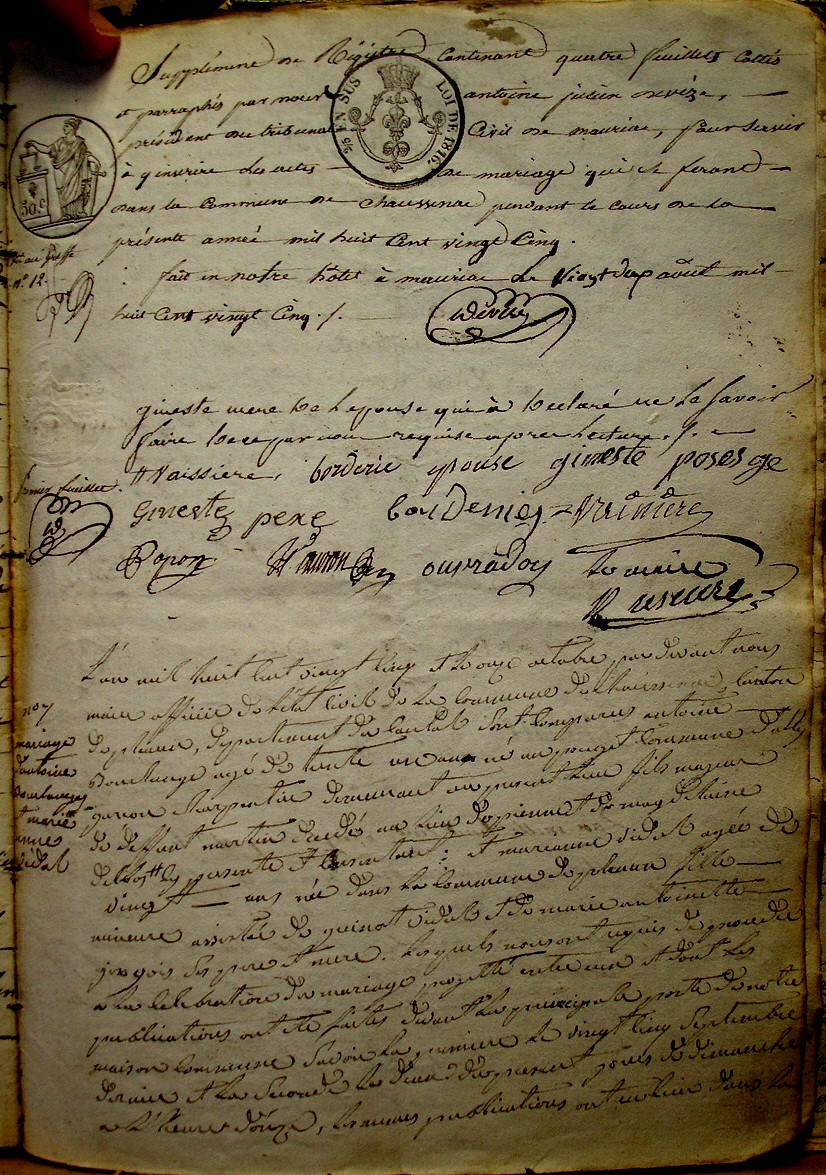 Supplément de Régistre Contenant quatre feuillets Cottés
et paraphés par nous antoine julien devèze,
président du tribunal Civil de mauriac, pour servir
à y inscrire les actes de mariage qui se feront
dans la Commune de Chaussenac pendant le cours de la
présente année mil huit Cent vingt Cinq.
fait en notre hôtel à mauriac le vingt deux août mil
huit Cent vingt Cinq ./.
Devèze
EN SUS
LOI DE 1816.
50.c
nº 12.
gineste mere de Lepouse qui à declaré ne Le savoir
faire de ce par nous requise apres Lecture ./.
Vaissiere, borderie epouse gineste
premier feuillet.
gineste pere
ouvradou Le maire
nº 7
mariage
d'antoine
et marie
anne
vidal
L'an mil huit Cent vingt Cinq et Le onze octobre, par devant nous
maire officier de L'état civil de La Commune de Chaussenac, Canton
de pleaux, département du Cantal sont Comparus antoine
agé de trente un an né au Commune d'ally
garcon Charpentier demeurant au present lieu fils majeur
de deffunt martin décédé au Lieu et de magdelaine
presente et Consentant; et marianne vidal agée de
vingt ans née dans La Commune de pleaux fille
mineure assistée de vidal et de marie antoinette
ses pere et mere. Lesquels nous ont requis de proceder
a La Célébration du mariage projetté entre eux et dont Les
publications ont été faites devant La principale porte de notre
maison Commune Savoir La premiere Le vingt Cinq Septembre
dernier et La Seconde Le deux du present jours de dimanche
a L'heure, Lesmemes publications ont eu lieu dans La